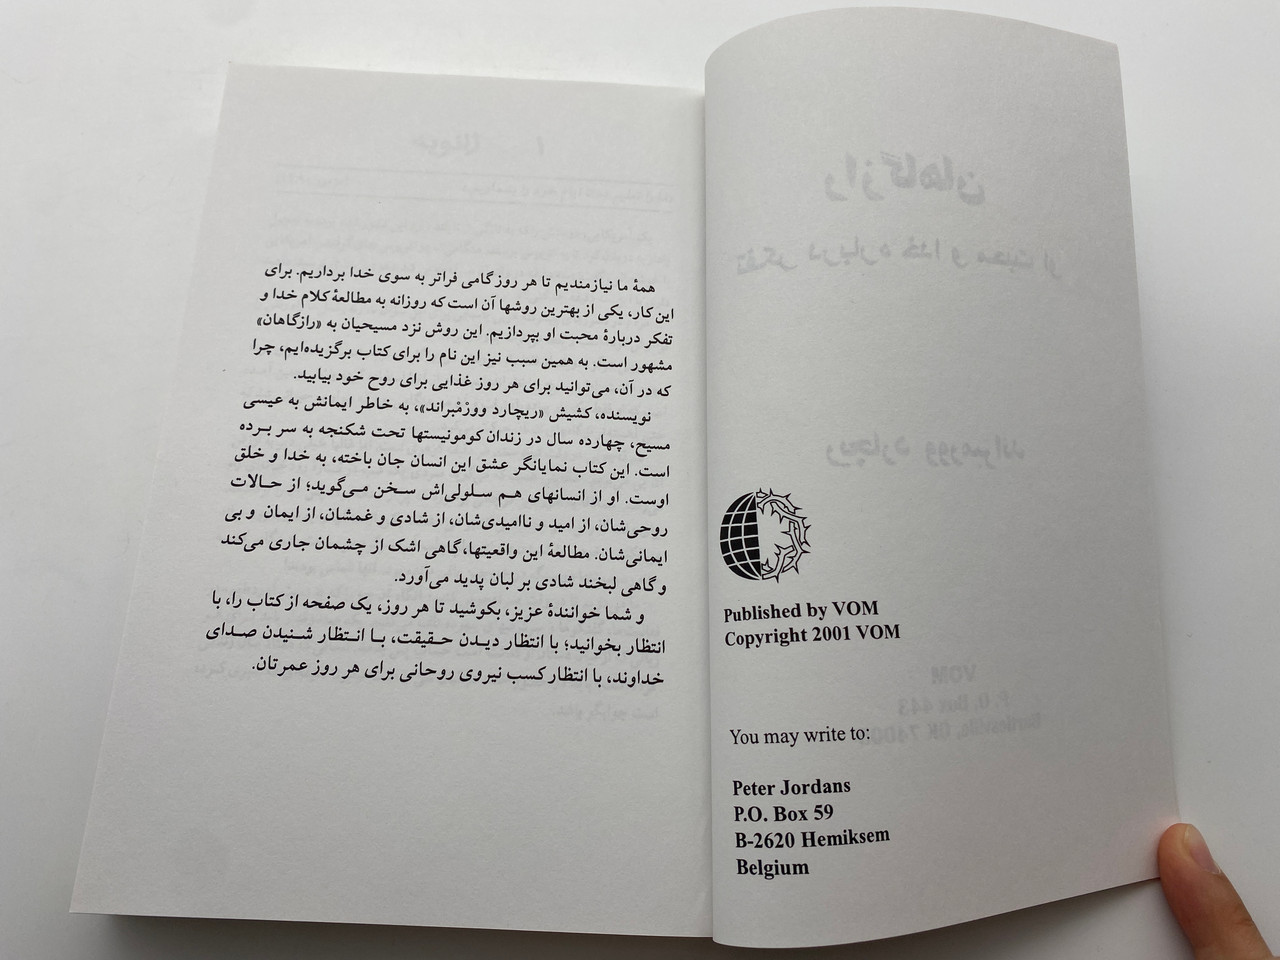 همهٔ ما نیازمندیم تا هر روز گامی فراتر به سوی خدا برداریم. برای
این کار، یکی از بهترین روشها آن است که روزانه به مطالعهٔ کلام خدا و
تفکر دربارهٔ محبت او بپردازیم. این روش نزد مسیحیان به «رازگاهان»
مشهور است. به همین سبب نیز این نام را برای کتاب برگزیده‌ایم، چرا
که در آن، می‌توانید برای هر روز غذایی برای روح خود بیابید.
نویسنده، کشیش «ریچارد وورْمْبراند»، به خاطر ایمانش به عیسی
مسیح، چهارده سال در زندان کومونیستها تحت شکنجه به سر برده
است. این کتاب نمایانگر عشق این انسان جان باخته، به خدا و خلق
اوست. او از انسانهای هم سلولی‌اش سخن می‌گوید؛ از حالات
روحی‌شان، از امید و ناامیدی‌شان، از شادی و غمشان، از ایمان و بی
ایمانی‌شان. مطالعهٔ این واقعیتها، گاهی اشک از چشمان جاری می‌کند
و گاهی لبخند شادی بر لبان پدید می‌آورد.
و شما خوانندهٔ عزیز، بکوشید تا هر روز، یک صفحه از کتاب را، با
انتظار بخوانید؛ با انتظار دیدن حقیقت، با انتظار شنیدن صدای
خداوند، با انتظار کسب نیروی روحانی برای هر روز عمرتان.
رازگاهان
تفکر درباره خدا و محبت او
ریچارد وورمبراند
VOM
P. O. Box 443
Published by VOM
Copyright 2001 VOM
You may write to:
Peter Jordans
P.O. Box 59
B-2620 Hemiksem
Belgium